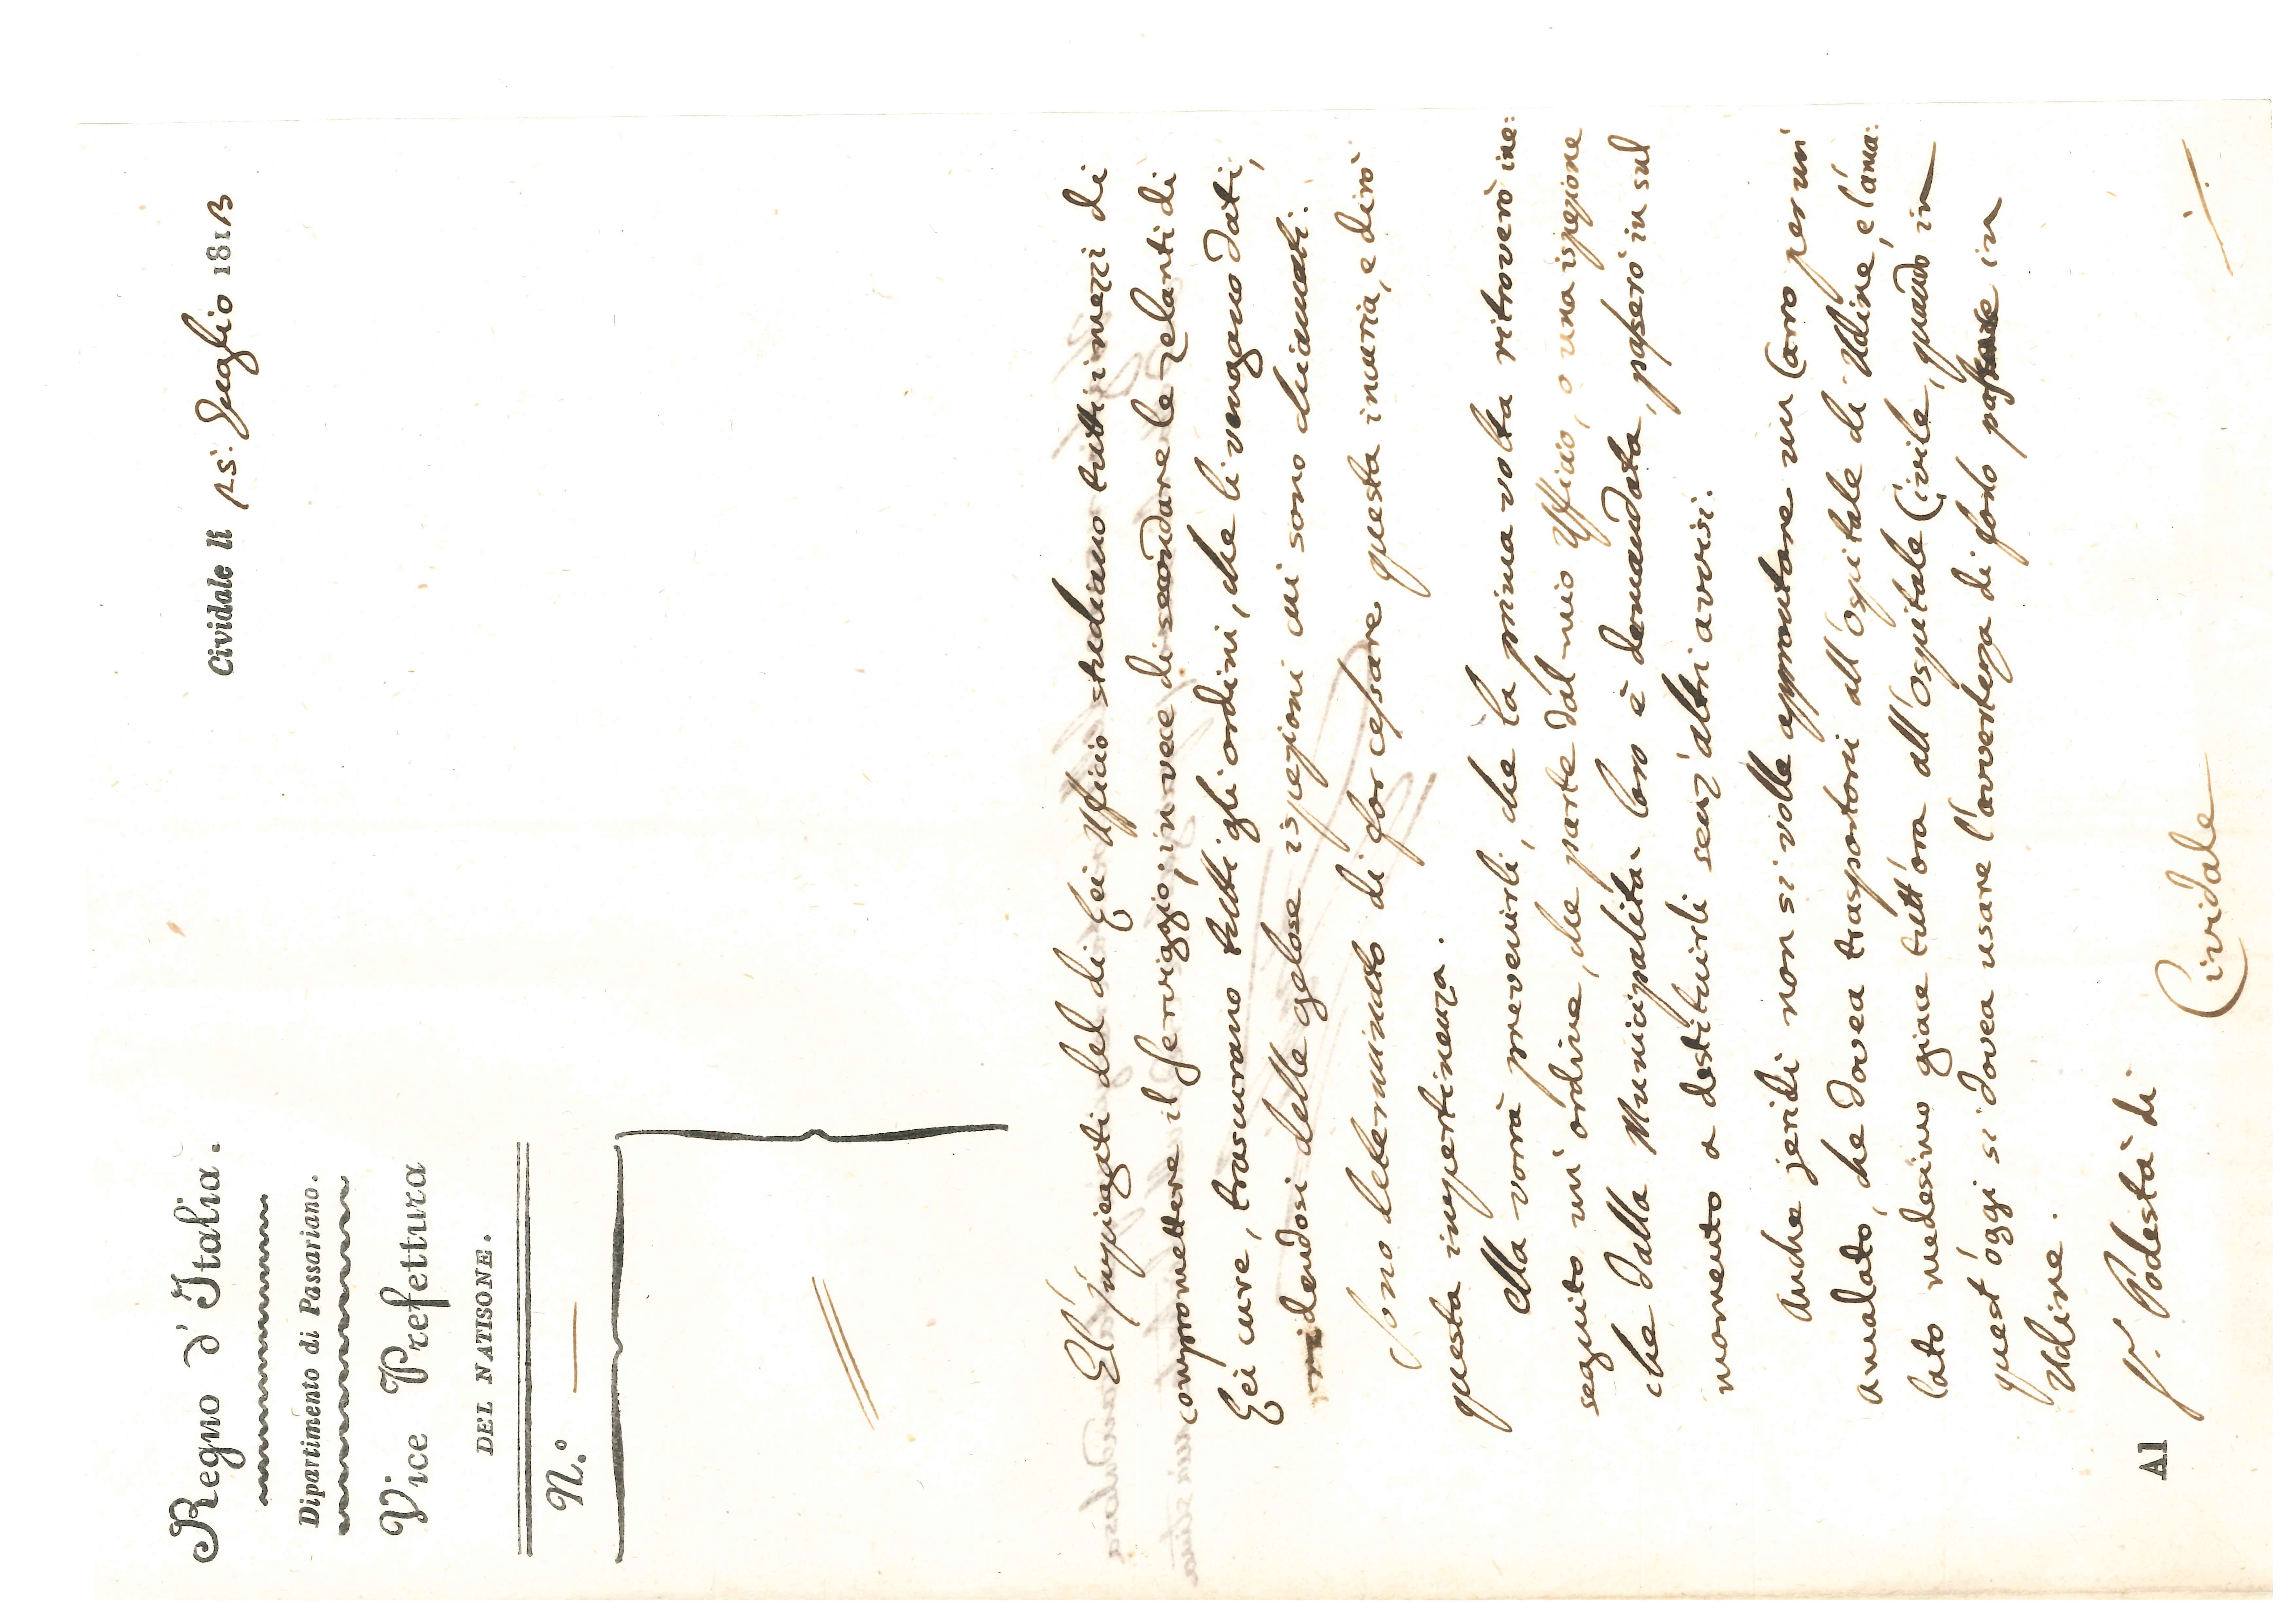 Regno d'Italia.
Dipartimento di Passariano.
Vice Prefettura
DEL NATISONE.
N.°
Cividale li 15. Luglio 1813
Gl'impiegati del di Lei Ufficio studiano tutti i mezzi di
compromettere il servizio; in vece di secondare le zelanti di
Lei cure, trascurano tutti gli ordini, che li vengono dati,
ridendosi delle gelose ispezioni cui sono chiamati.
Sono determinato di far cessare questa incuria, e dirò
questa impertinenza.
Ella vorrà prevenirli, che la prima volta ritroverò ine:
seguito un ordine, che parte dal mio Ufficio, o una ispezione
che dalla Municipalità loro è demandata, passerò in sul
momento a destituirli senz'altri avvisi.
Anche jeridì non si volle approntare un Carro per un
amalato, che dovea trasportarsi all'Ospitale di Udine, e l'ama:
lato medesimo giace tutt'ora all'Ospitale Civile, quando in
quest'oggi si dovea usare l'avvertenza di farlo passare in
Udine.
Al S.r Podestà di
Cividale